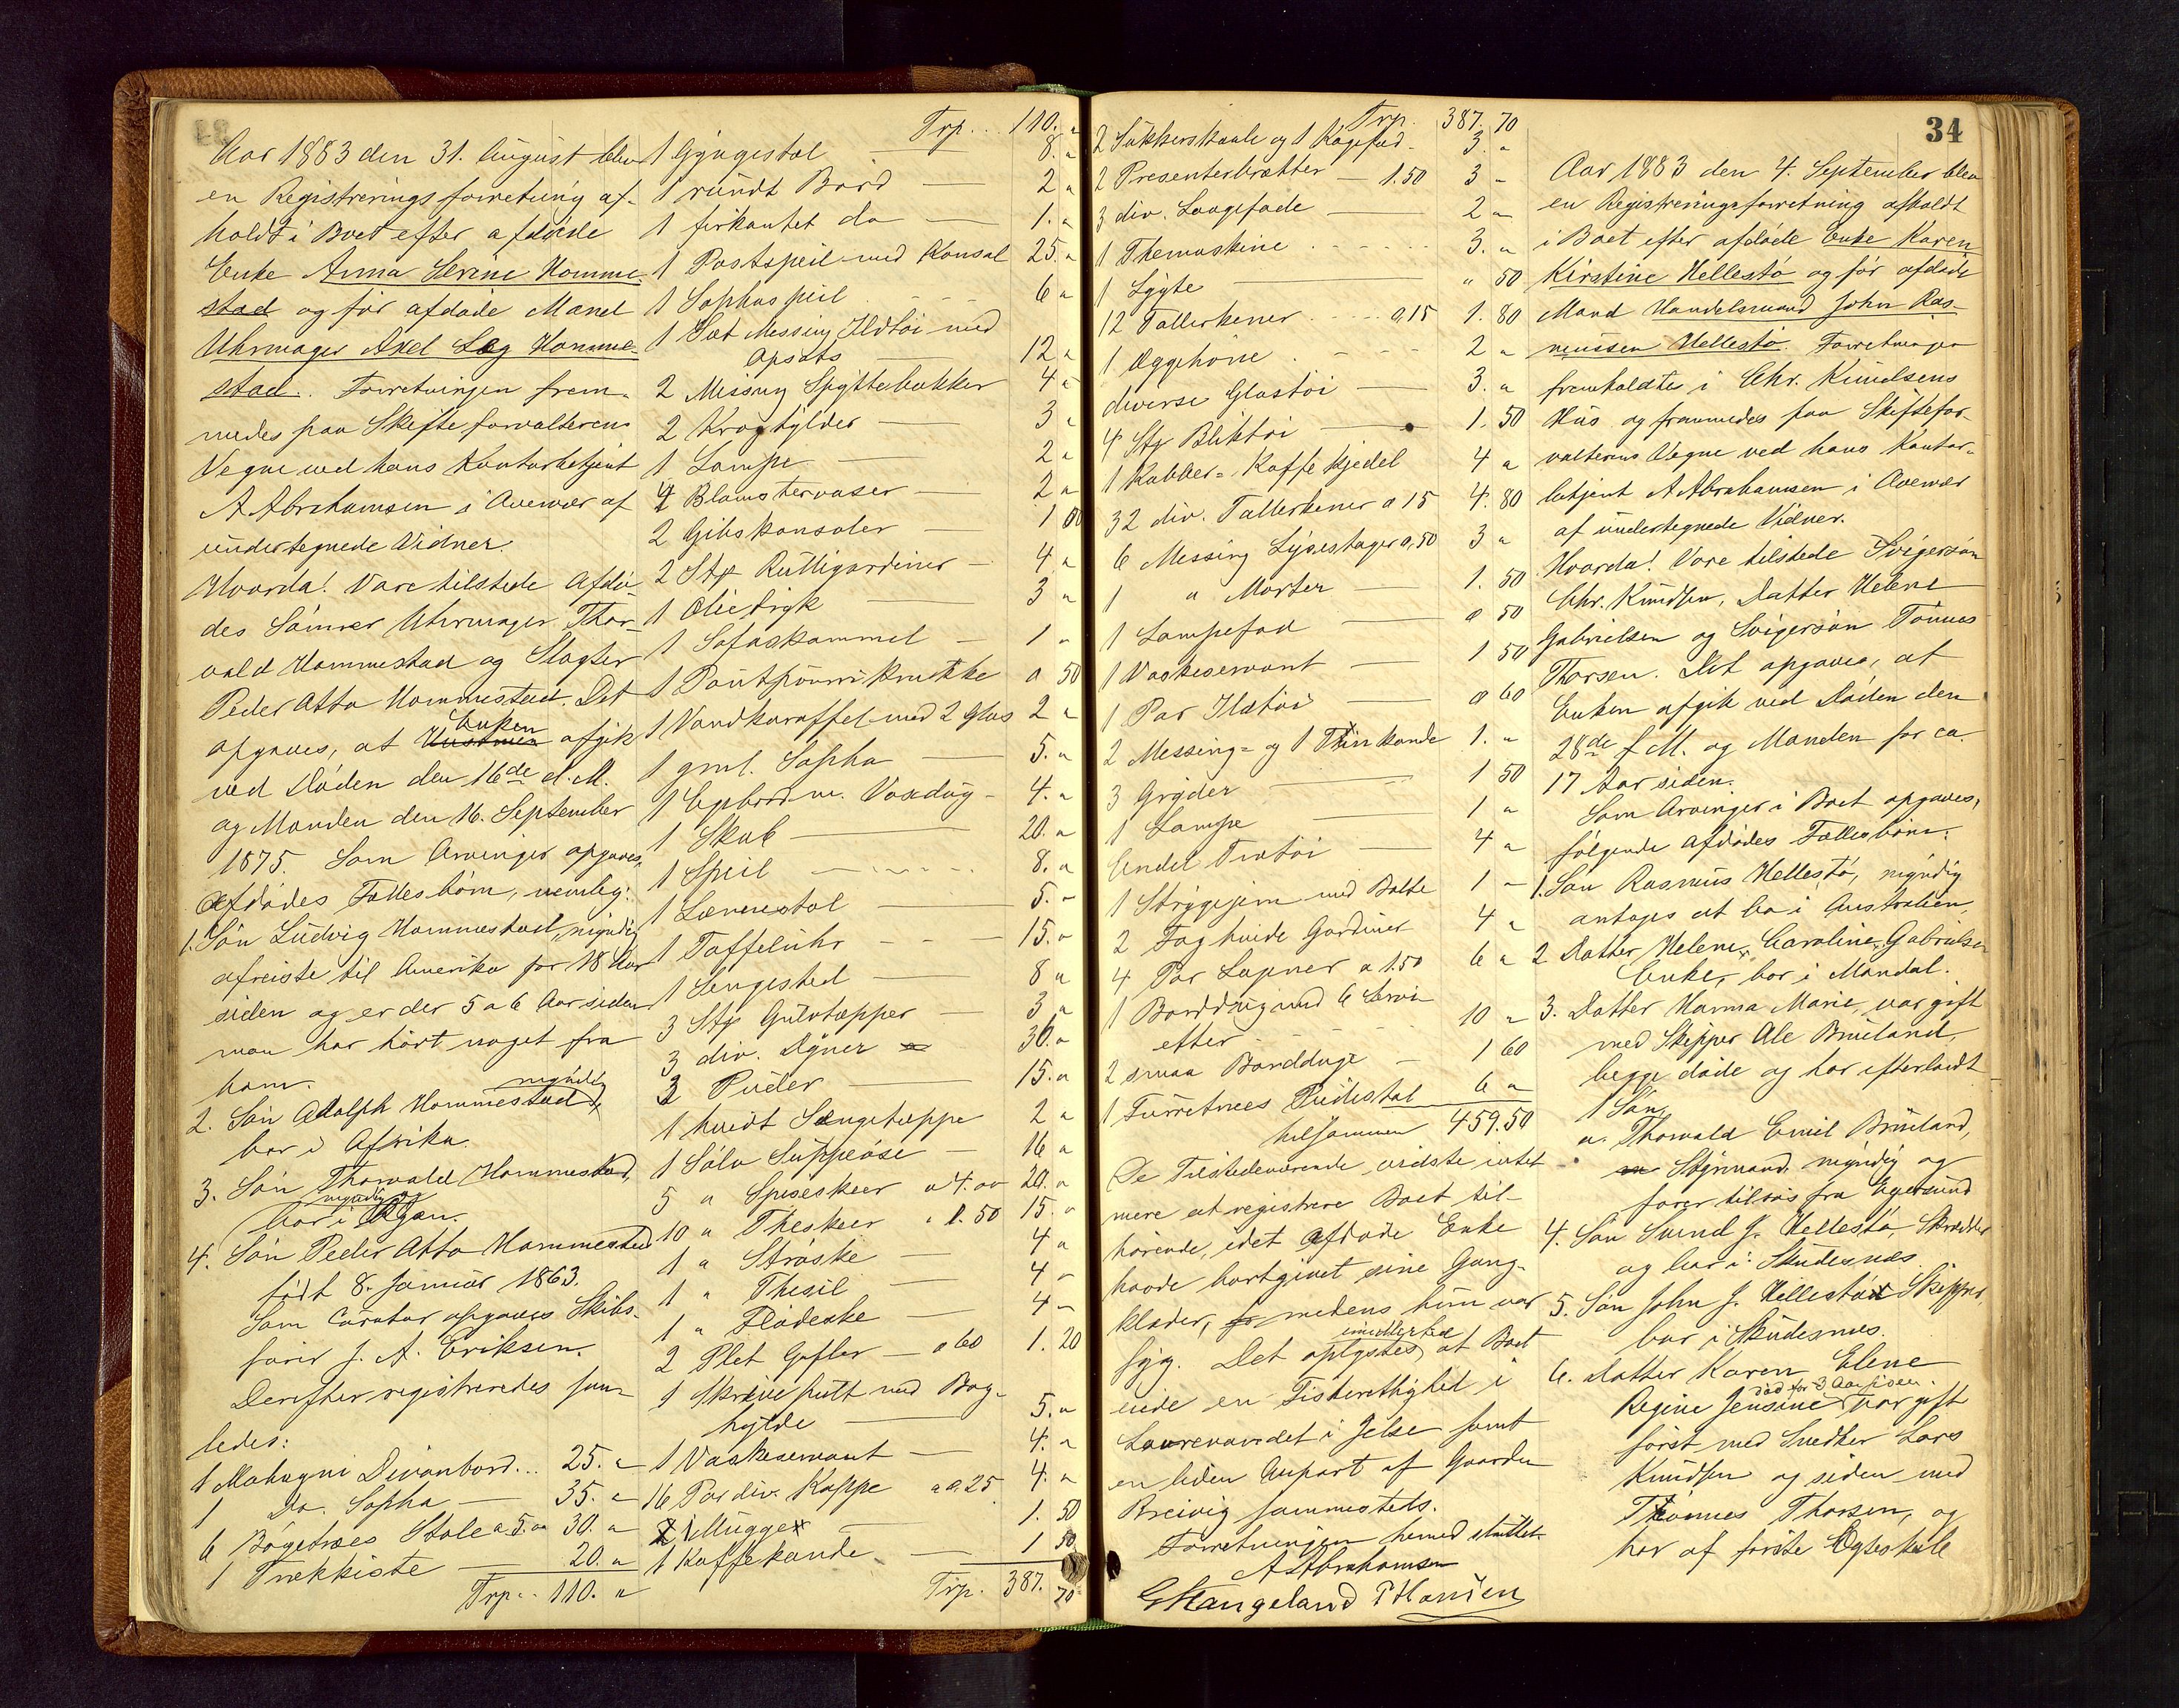 Aar 1883 den 31. August blev
en Registreringsforretning af-
holdt i Boet efter afdøde
Enke Anna Serine Homme-
stad og før afdøde Mand
Uhrmager Axel Log Homme-
stad. Forretningen frem-
medes paa Skifteforvalterens
Vegne ved hans Kontorbetjent
A Abrahamsen i Overvær af
undertegnede Vidner.
Hvorda! Vare tilstede Afdø-
des Sønner Uhrmager Thor-
vald Hommestad og Slagter
Peder Atto Hommestad. Det
opgaves, at Enken afgik
ved Døden den 16de d. M.
og Manden den 16. September
1875. Som Arvinger opgaves
afdødes Fællesbørn, nemlig:
1. Søn Ludvig Hommestad, myndig
afreiste til Amerika for 18 Aar
siden og er der 5 a 6 Aar siden
man har hørt noget fra
ham.
2. Søn Adolph Hommestad, myndig
bor i Afrika.
3. Søn Thorvald Hommestad,
myndig og
bor i Byen.
4. Søn Peder Atto Hommestad
født 8. Januar 1863.
Som Curator opgaves Skibs-
fører J. A. Eriksen.
Derefter registreredes saa-
ledes:
1 Mahogni Divanbord... 25. "
1 Do. Sopha — 35. "
6 Bøgetræes Stole a 5. " 30. "
1 Trækkiste — 20. "
Trp... 110. "
Trp... 110. "
1 Gyngestol — 8. "
1 rundt Bord — 2 "
1 firkantet do — 1. "
1 Postspeil med Konsol 25. "
1 Sophaspeil 6 "
1 Sæt Messing Ildtøi med
Opsats — 12 "
2 Messing Spyttebakker 4 "
2 Kroghylder — 3 "
1 Lampe — 2 "
4 Blomstervaser — 2 "
2 Gibskonsoler — 1 00
2 Stk Rullegardiner — 4 "
1 Olietryk — 3 "
1 Sofaskammel — 1 "
1 Poutpourri Krukke " 50
1 Vandkaraffel med 2 Glas 2 "
1 gml. Sopha — 5. "
1 Bord m. Voxdug — 4. "
1 Skab — 20. "
1 Speil — 8. "
1 Lænestol — 5. "
1 Taffeluhr — 15. "
1 Sengested — 8 "
3 Stk Gulvtæpper — 3 "
3 div. Dyner 36. "
3 Puder — 15. "
1 hvidt Sengetæppe 2 "
1 Sølv Suppeøse — 16 "
5 " Spiseskeer a 4. " 20. "
10 " Theskeer " 1. 50 15. "
1 " Strøske 4 "
1 " Thesil — 4 "
1 " Flødeske — 4 "
2 Plet Gafler — a 60 1. 20
1 Skrivepult med Bog-
hylde — 5. "
1 Vaskeservant — 4. "
16 Par div. Koppe a 0.25 4. "
1 Mugge — 1. 50
1 Kaffekande — 1 50
Trp. 387. 70
Trp. 387. 70
2 Sukkerskaale og 1 Kagefad 3. "
2 Presenterbrætter — 1.50 3 "
3 div. Laagefade — 2 "
1 Themaskine 3. "
1 Lygte — " 50
12 Tallerkener a 15 1. 80
1 Æggehøne 2 "
diverse Glastøi — 3. "
4 Stk Bliktøi — 1. 50
1 Kobber-Kaffekjedel 4 "
32 div. Tallerkener a 15 4. 80
6 Messing Lysestager a, 50 3 "
1 " Morter — 1. 50
1 Lampefad — " 50
1 Vaskeservant — 1 50
1 Par Ildtøi — " 60
2 Messing- og 1 Tinkande 1. "
3 Gryder — 1 50
1 Lampe — 1 "
Endel Trætøi — 4 "
1 Strygejern med Bolte 1 "
2 Fag hvide Gardiner 4 "
4 Par Lagner a 1.50 6 "
1 Borddug med 6 Servi-
etter 10 "
2 smaa Bordduge — 1 60
1 Furretræes Pidestal 6 "
tilsammen 459.50
De Tilstedeværende vidste intet
mere at registrere Boet til-
hørende, idet afdøde Enke
havde bortgivet sine Gang-
klæder, medens hun var
syg. Det oplystes imidlertid at Boet
eiede en Fisherettighed i
Laurevandet i Jelse samt
en liden Anpart af Gaarden
Breivig sammesteds.
Forretningen hermed sluttet.
A Abrahamsen
G Hangeland P Hansen
34
Aar 1883 den 4. September blev
en Registreringsforretning afholdt
i Boet efter afdøde Enke Karen
Kirstine Hellestø og før afdøde
Mand Handelsmand John Ras-
mussen Hellestø. Forretningen
fremholdtes i Chr. Knudsens
Hus og fremmedes paa Skiftefor-
valterens Vegne ved hans Kontor-
betjent A Abrahamsen i Overvær
af undertegnede Vidner.
Hvorda! Vare tilstede Svigersøn
Chr. Knudsen, Datter Helene
Gabrielsen og Svigersøn Tønnes
Thorsen. Det opgaves, at
Enken afgik ved Døden den
28de f. M. og Manden for ca.
17 Aar siden.
Som Arvinger i Boet opgaves,
følgende afdødes Fællesbørn.
1. Søn Rasmus Hellestø, myndig
antages at bo i Australien,
2 Datter Helene Caroline Gabrielsen
Enke, bor i Mandal.
3. Datter Hanna Marie, var gift
med Skipper Ole Bruland,
begge døde og har efterladt
1 Søn
a. Thorvald Emil Bruland,
Styrmand, myndig og
farer tilsøs fra Egersund
4. Søn Svend J. Hellestø, Skrædder
og bor i Skudesnæs.
5. Søn John J. Hellestø Skipper,
bor i Skudesnæs.
6. Datter Karen Elene
Regine Jensine død for 3 Aar siden. var gift
først med Snedker Lars
Knudsen og siden med
Tønnes Thorsen, og
har af første Egteskab